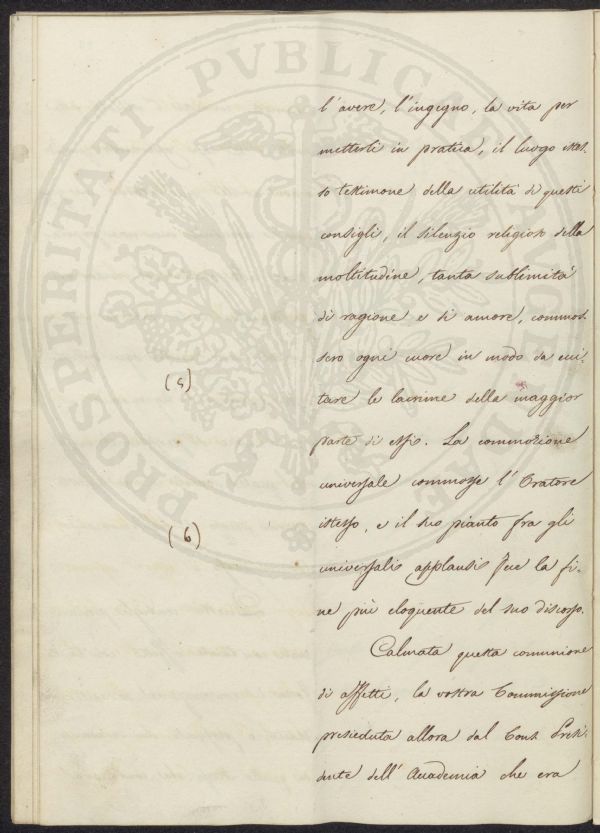 PROSPERITATI PVBLICAE AVGENDAE
l'avere, l'ingegno, la vita per
metterli in pratica, il luogo stes-
so testimone della utilità di questi
consigli, il silenzio religioso della
moltitudine, tanta sublimità
di ragione e di amore, commos-
sero ogni cuore in modo da ecci-
tare le lacrime della maggior
(5)
parte di essi. La commozione
universale commosse l'Oratore
istesso, e il suo pianto fra gli
(6)
universali applausi fece la fi-
ne più eloquente del suo discorso.
Calmata questa comunione
di affetti, la vostra Commissione
presieduta allora dal Cons. Presi-
dente dell'Accademia che era